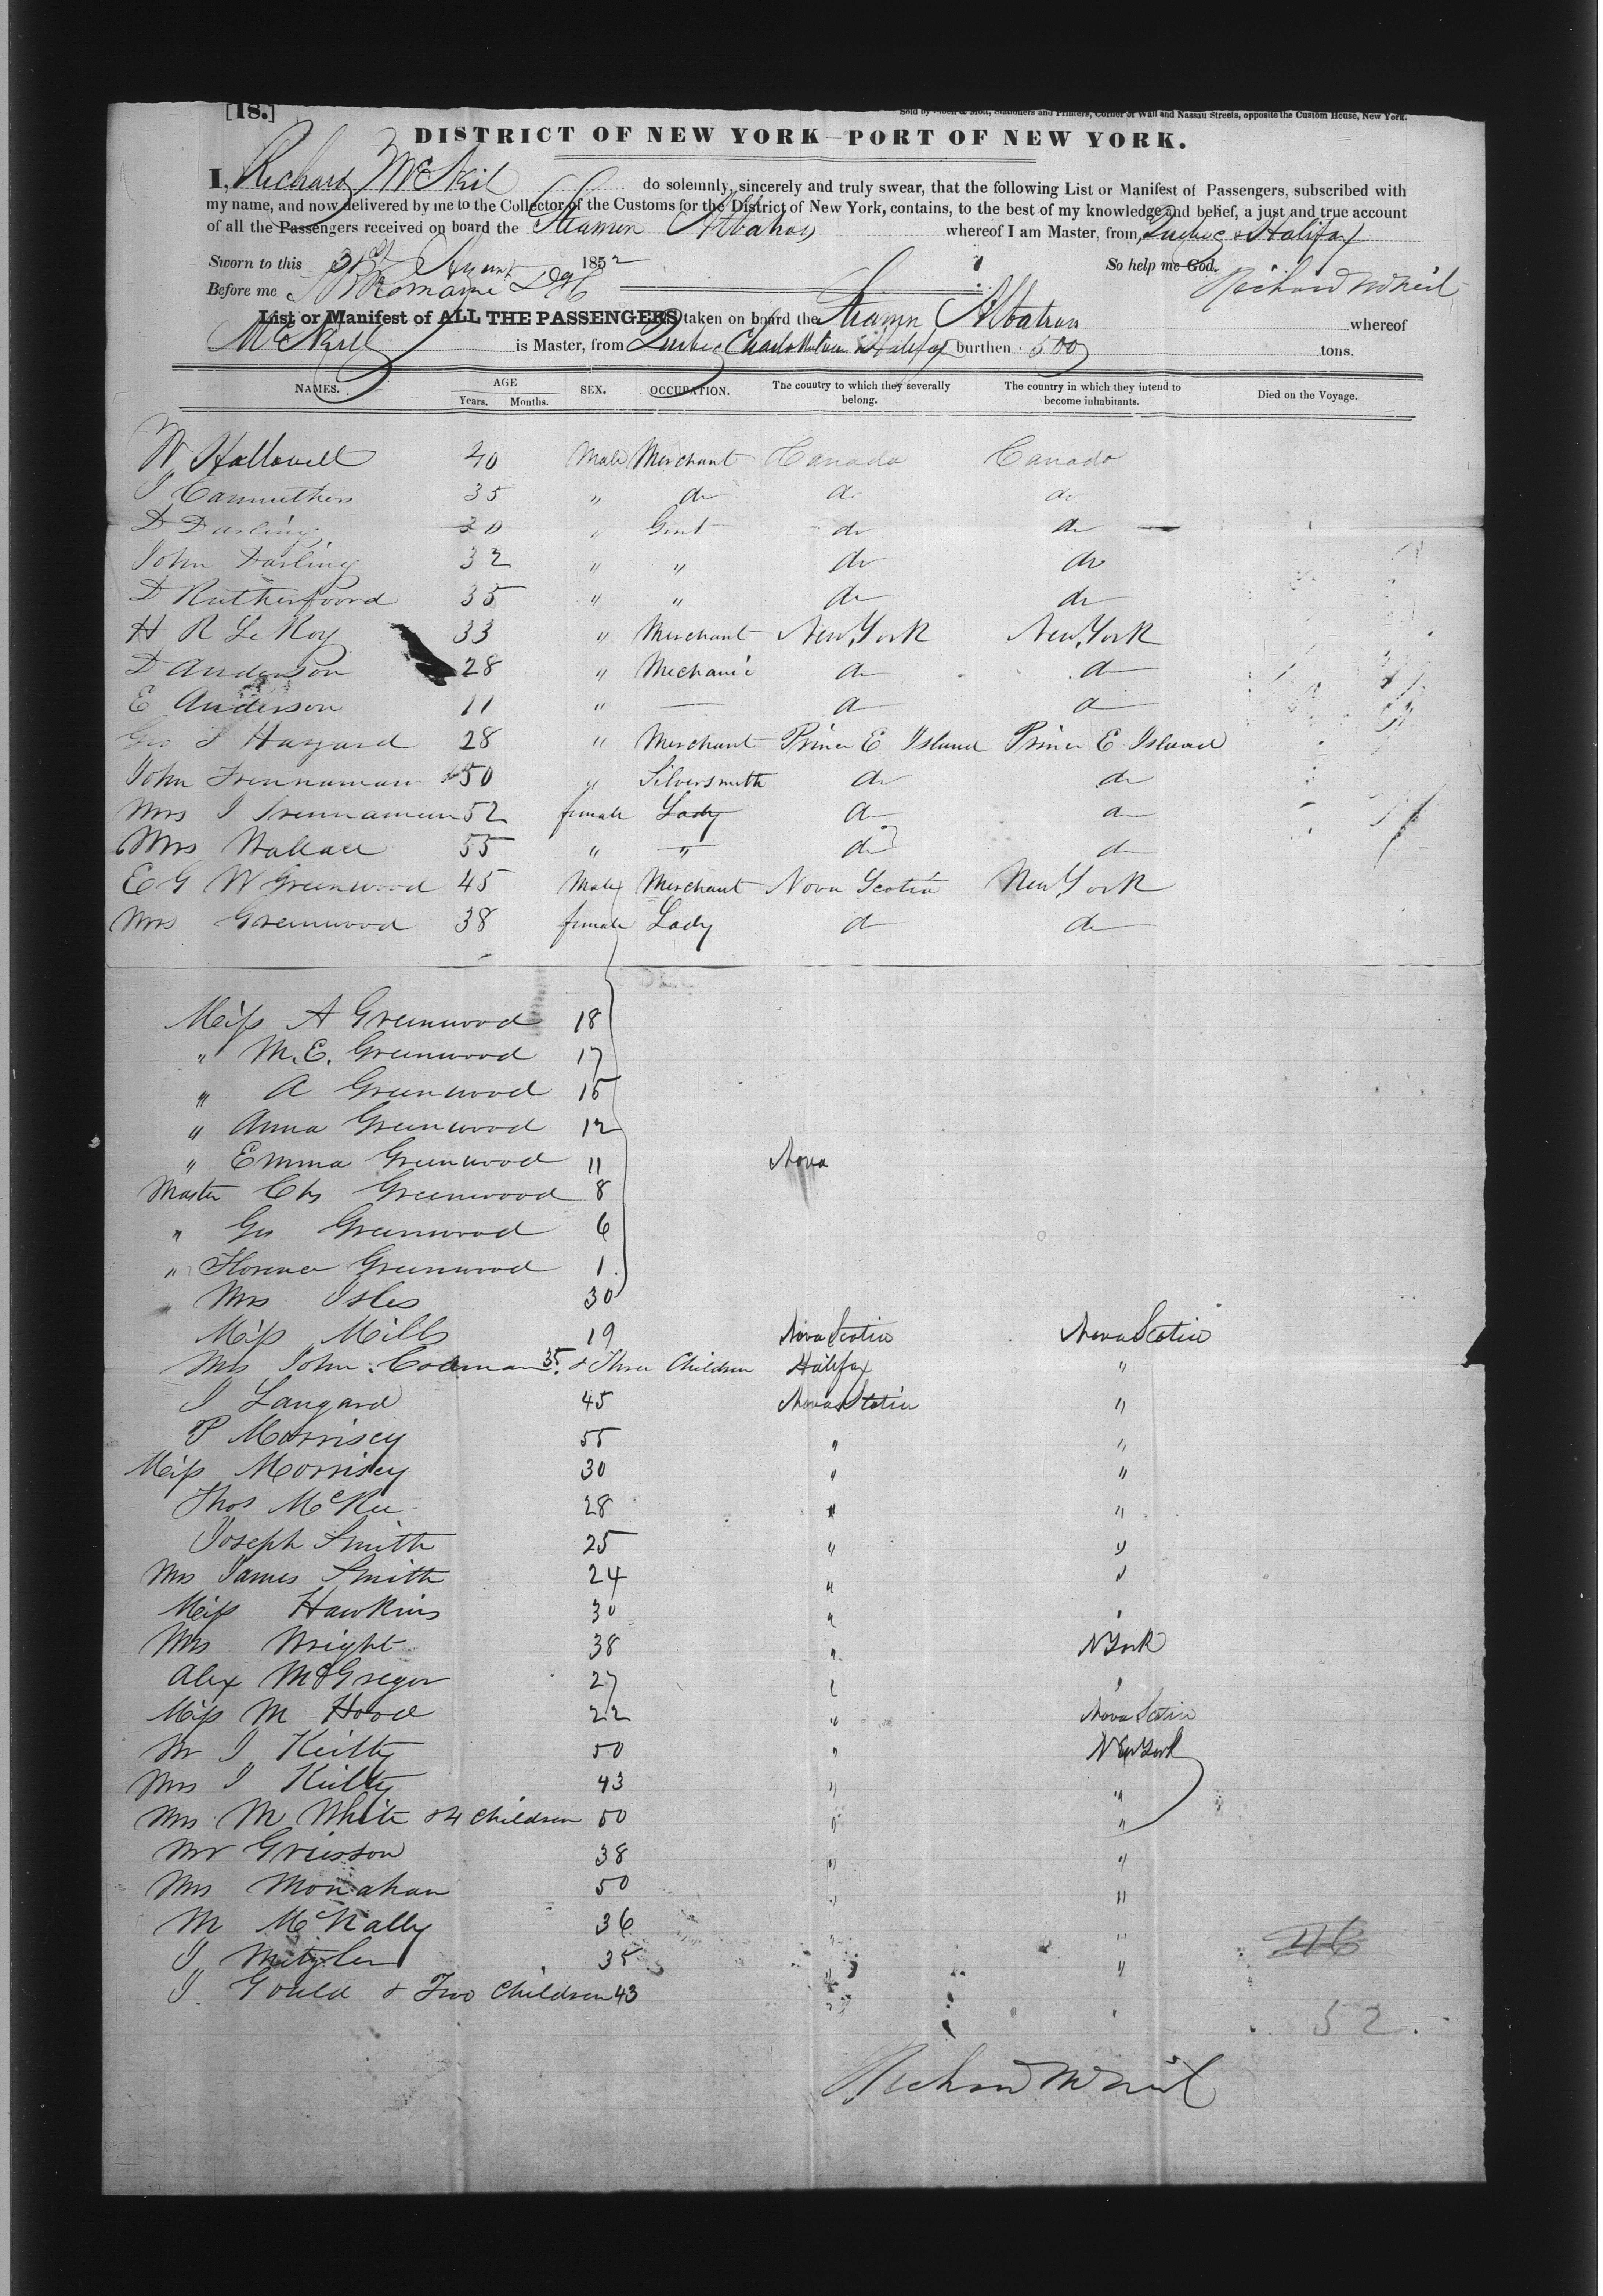 [18.]
Sold by & Mott, Stationers and Printers, Corner of Wall and Nassau Streets, opposite the Custom House, New York.
DISTRICT OF NEW YORK—PORT OF NEW YORK.
I, Richard McNeil do solemnly, sincerely and truly swear, that the following List or Manifest of Passengers, subscribed with
my name, and now delivered by me to the Collector of the Customs for the District of New York, contains, to the best of my knowledge and belief, a just and true account
of all the Passengers received on board the Steamer Albatross whereof I am Master, from Quebec & Halifax
Sworn to this 31st August 1852 So help me God.
Before me Romaine Richard McNeil
List or Manifest of ALL THE PASSENGERS taken on board the Steamer Albatross whereof
McNeill is Master, from Quebec Charlottetown & Halifax burthen 500 tons.
NAMES. AGE Years. Months. SEX. OCCUPATION. The country to which they severally belong. The country in which they intend to become inhabitants. Died on the Voyage.
W Hallowell 40 Male Merchant Canada Canada
J Carruthers 35 " do do do
D Darling 30 " Gent do do
John Darling 32 " " do do
D Rutherfoord 35 " " do do
H R Le Roy 33 " Merchant New York New York
D Anderson 28 " Mechanic do do
E Anderson 11 " — do do
Geo T Hazard 28 " Merchant Prince E Island Prince E Island
John Trennaman 50 " Silversmith do do
Mrs J Trennaman 52 female Lady do do
Mrs Wallace 55 " " do do
E G W Greenwood 45 Male Merchant Nova Scotia New York
Mrs Greenwood 38 female Lady do do
Miss A Greenwood 18
" M. E. Greenwood 17
" A Greenwood 15
" Anna Greenwood 12
" Emma Greenwood 11 Nova
Master Chs Greenwood 8
" Geo Greenwood 6
" Florence Greenwood 1
" Mrs Isles 30
Miss Mills 19 Nova Scotia Nova Scotia
Mrs John Codman 35 & Three Children Halifax "
J Langard 45 Nova Scotia "
P Morrisey 55 " "
Miss Morrisey 30 " "
Thos McKee 28 " "
Joseph Smith 25 " "
Mrs James Smith 24 " "
Miss Hawkins 30 " "
Mrs Wright 38 " N York
Alex McGregor 27 " "
Miss M Hood 22 " Nova Scotia
Mr J Keilty 50 " New York
Mrs J Keilty 43 " "
Mrs M White & 4 Children 50 " "
Mr Grierson 38 " "
Mrs Monahan 50 " "
M McNally 36 " "
J Mitzler 35 " "
J. Gould & Two Children 43 " "
46
52.
Richard McNeil